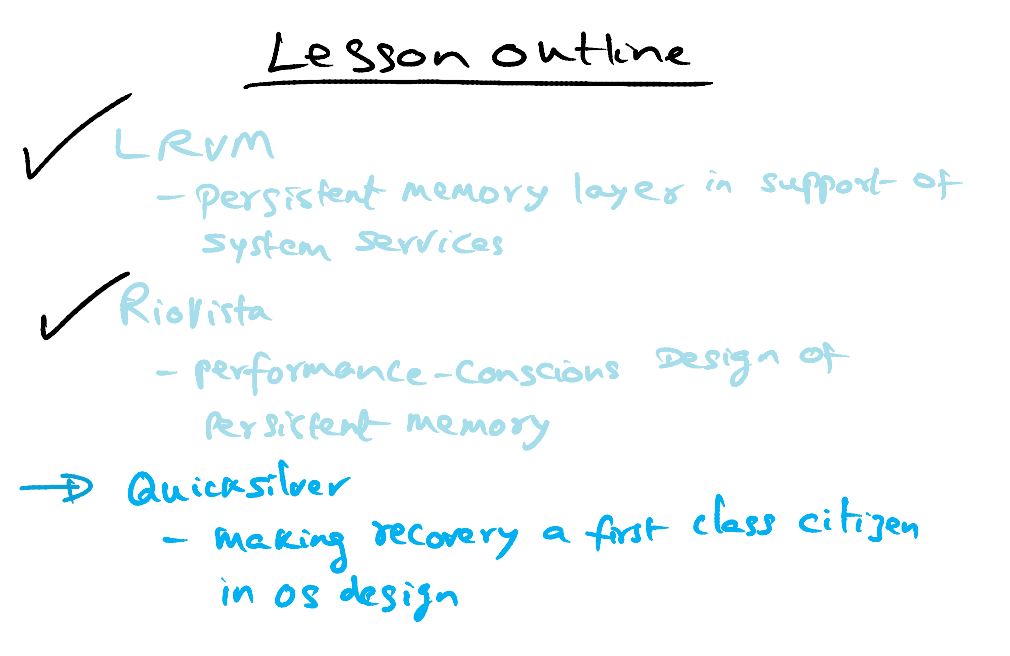 Lesson outline
LRVM
- persistent memory layer in support of
system services
RioVista
- performance-conscious Design of
persistent memory
Quicksilver
- making recovery a first class citizen
in os design